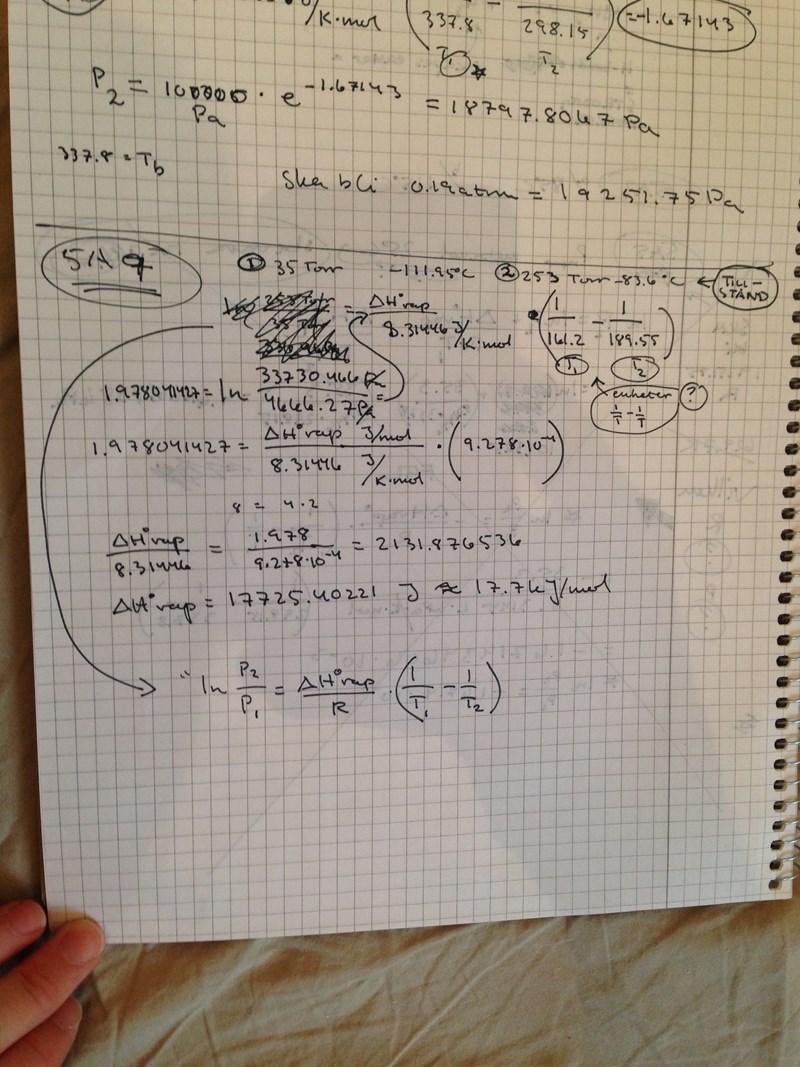 /K·mol 337.8 - 298.15 = -1.67143
T₁ T₂
P₂ = 100000 Pa · e^-1.67143 = 18797.8067 Pa
337.8 = Tb
Ska bli 0.19 atm = 19251.75 Pa
① 35 Torr -111.95°C ② 253 Torr -83.6°C ← TILL-
STÅND
= ΔH°vap / 8.31446 J/K·mol · (1/161.2 - 1/189.55)
T₁ T₂
1.978041427 = ln 33730.466 Pa / 4666.27 Pa =
enheter ?
1/T - 1/T
1.978041427 = ΔH°vap J/mol / 8.31446 J/K·mol · (9.278·10^-4)
8 = 4·2
ΔH°vap / 8.31446 = 1.978 / 9.278·10^-4 = 2131.876536
ΔH°vap = 17725.40221 J ≈ 17.7 kJ/mol
ln P₂/P₁ = ΔH°vap / R · (1/T₁ - 1/T₂)